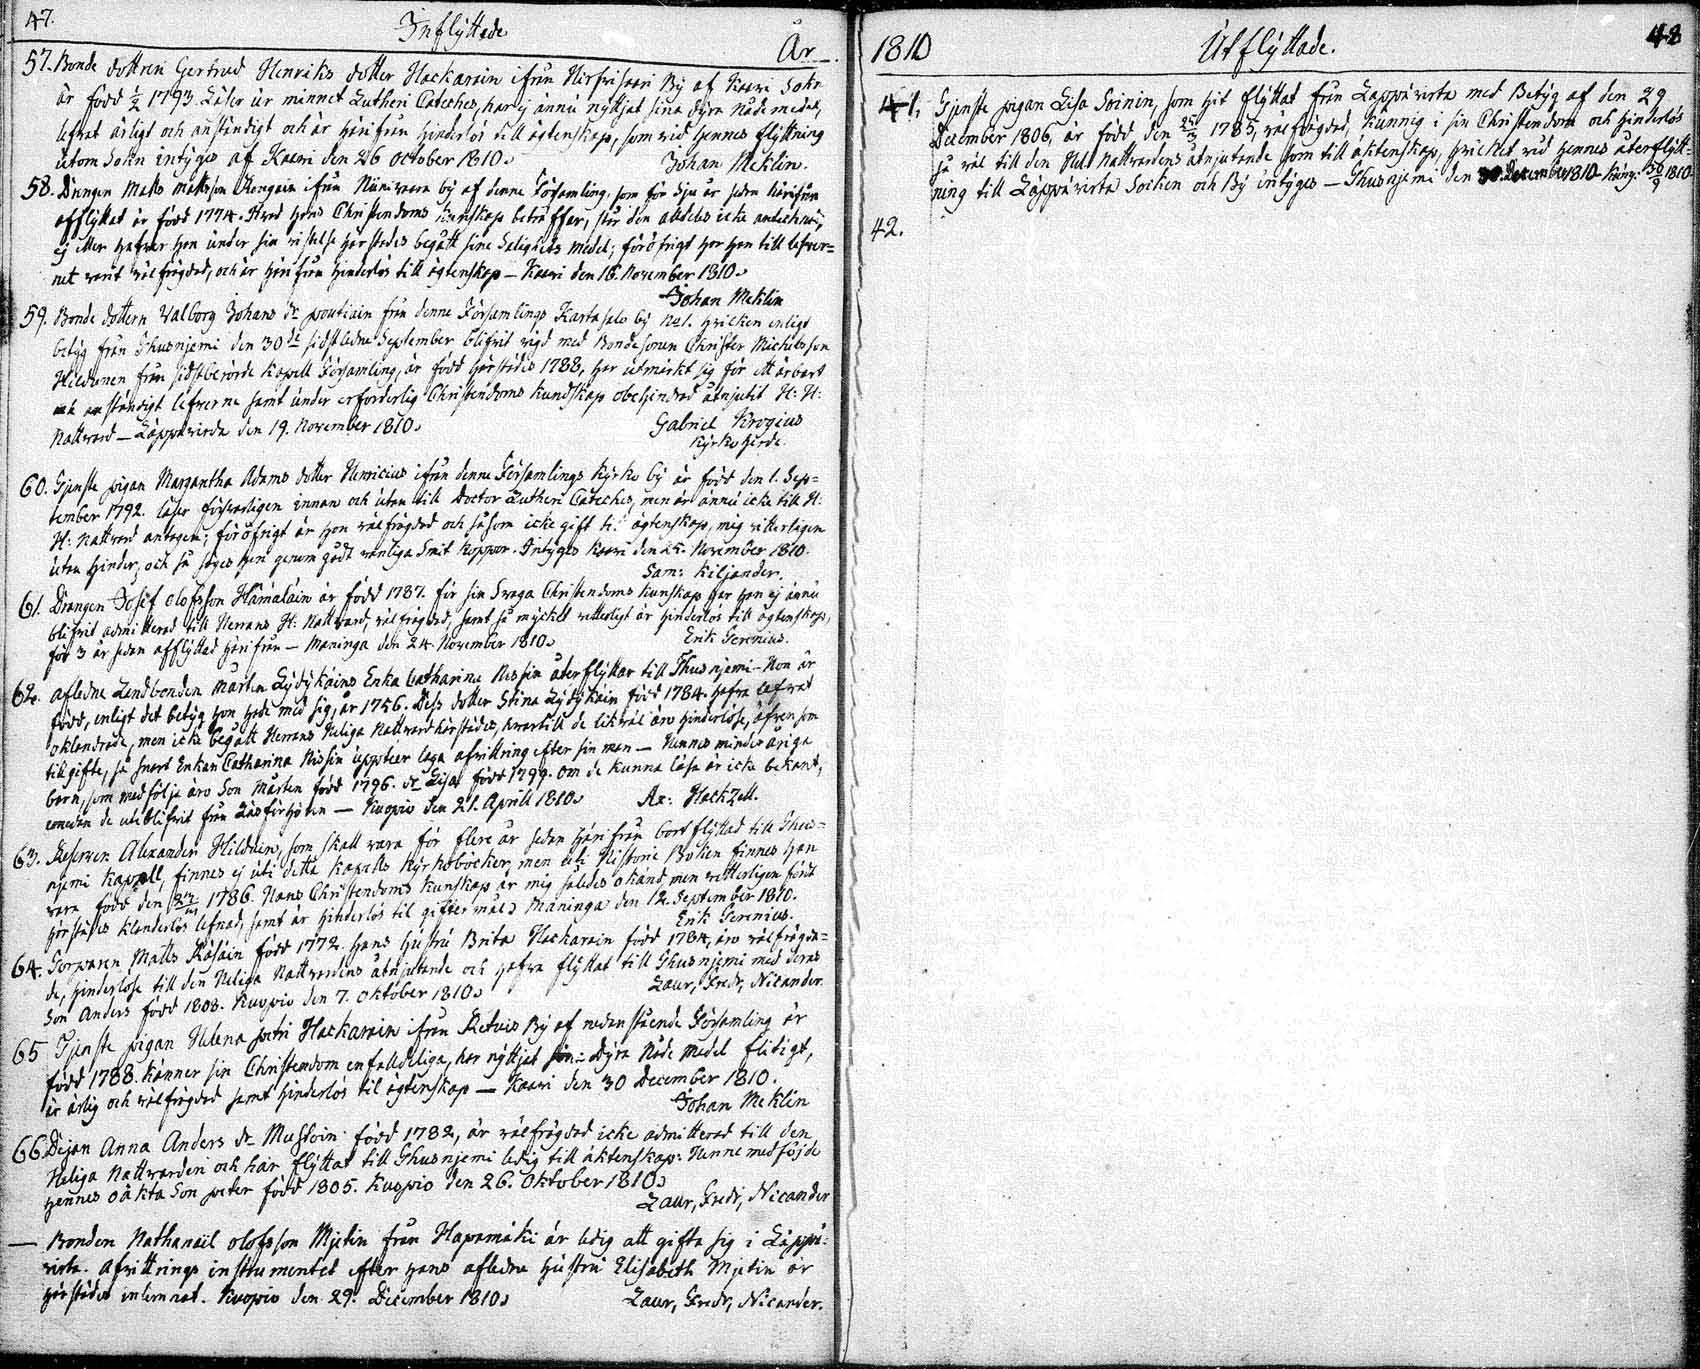 47. Inflyttade
År
57. Bonde dottren Gertrud Henriks dotter Hackarain ifrån Hirfvisaari By af Kaavi Sokn
är född 1/2 1793. Läser ur minnet Lutheri Cateches, har ej ännu nyttjat sina dyra Nådemedel,
lefvat ärligt och anständigt och är härifrån hinderlös till ägtenskap, som vid hennes flyttning
utom Sokn intyges af Kaavi den 26 October 1810.
Johan Meklin.
58. Drängen Matts Mattsson Rengain ifrån Niinivaara by af denne Församling, som för sju år sedan härifrån
afflyttat är född 1774. Hvad hans Christendoms kunskap beträffar, står den alldeles icke antecknad,
ej eller hafver han under sin vistelse härstädes begått sine Salighets medel; föröfrigt har han till lefver-
net varit välfrägdad, och är härifrån hinderlös till ägtenskap — Kaavi den 16. November 1810.
Johan Meklin
59. Bonde dottern Valborg Johans dr poutiain från denne Församlings Kartasalo by No 1. hvilken enligt
betyg från Thusnjemi den 30de sidstledne September blifvit vigd med Bondesonen Christer Michelsson
Hildunen från sidstberörde Kapell Församling, är född härstädes 1788, har utmärkt sig för ett ärbart
och anständigt lefverne samt under erforderlig Christendoms kundskap obehindrad åtnjutit H: H:
Nattvard — Läppävirda den 19. November 1810.
Gabriel Krogius
Kyrkoherde.
60. Tjenste pigan Margaretha Adams dotter Henricius ifrån denne Församlings Kyrko by är född den 1. Sep-
tember 1792. läser försvarligen innan och utan till Doctor Lutheri Cateches, men är ännu icke till H:
H: Nattvard antagen; föröfrigt är hon välfrägdad och såsom icke gift til ägtenskap, mig vitterligen
utan hinder, och så säges hon genom gådt vanliga Smit koppor. Intyges Kaavi den 25. November 1810.
Sam: Kiljander.
61. Drängen Josef Olofsson Hämäläin är född 1787. för sin Svaga Christendoms kunskap har han ej ännu
blifvit admitterad till Herrans H: Nattvard, välfrägdad, samt så mycket vitterligt är hinderlös till ägtenskap,
för 3 år sedan afflyttad härifrån — Maninga den 24. November 1810.
Erik Gerenius.
62. afledne Landbonden Mårten Lydykäins Enka Catharina Nissin återflyttar till Thusnjemi — Hon är
född, enligt det betyg hon hade med sig, år 1756. Dess dotter Stina Lydykäin född 1784. hafva lefvat
oklandrade, men icke begått Herrans Heliga Nattvard härstädes, hvartill de likväl äro hinderlöse, äfven som
till gifte, så snart Enkan Catharina Nissin uppteer laga afvittring efter sin man — Hennes minderåriga
barn, som medfölja äro Son Mårten född 1796. dr Lisa född 1799. Om de kunna läsa är icke bekant,
emedan de uteblifvit från Läsförhören — Kuopio den 21. Aprill 1810.
Ax: Hackzell.
63. Reserven Alexander Hilduin, som skall vara för flere år sedan härifrån bortflyttad till Thus-
njemi kapell, finnes ej uti detta kapells Kyrkoböcker, men uti Historie Boken finnes han
vara född den 1786. Hans Christendoms kunskap är mig således okänd men vitterligen fört
härstädes klanderlös lefnad, samt är hinderlös til giftermål. Maninga den 12. September 1810.
Erik Gerenius.
64. Torparen Matts Räsäin född 1772. hans hustru Brita Hackarain född 1784, äro välfrägda-
de, hinderlöse till den Heliga Nattvardens åtnjutande och hafva flyttat till Thusnjemi med deras
Son Anders född 1808. Kuopio den 7. Oktober 1810.
Laur, Fredr, Nicander.
65 Tjenste pigan Helena petri Hackarain ifrån Retuis By af nedanstående Församling är
född 1788. känner sin Christendom enfalldeliga, har nyttjat sin: Dyra Nåde medel flitigt,
är ärlig och välfrägdad samt hinderlös til ägtenskap — Kaavi den 30 December 1810.
Johan Meklin
66. Pigan Anna Anders dr Mustoin född 1782, är välfrägdad icke admitterad till den
Heliga Nattvarden och har flyttat till Thusnjemi ledig till äktenskap: Henne medföljde
hennes oäkta Son peter född 1805. Kuopio den 26. Oktober 1810.
Laur, Fredr, Nicander
— Bonden Nathanail Olofsson Mjetin från Hapamäki är ledig att gifta sig i Läppä-
virta. Afvittrings instrumentet efter hans afledna hustru Elisabeth Mjetin är
härstädes inlemnat. Kuopio den 29. December 1810.
Laur, Fredr, Nicander.
1810 Utflyttade. 48
41. Tjenste pigan Lisa Soinin, som hit flyttat från Lappävirta med Betyg af den 29
December 1806, är född den 25/3 1785, välfrägdad, kunnig i sin Christendom och hinderlös
så väl till den Hel. Nattvardens åtnjutande som till aktenskap, hvilket vid hennes återflytt-
ning till Läppävirta Socken och By intyges — Thusnjemi den 30 December 1810 1810
42.